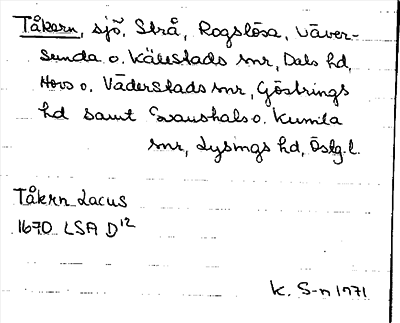 Tåkern, sjö, Strå, Rogslösa, Väver-
sunda o. Källstads snr, Dals hd,
Hovs o. Väderstads snr, Göstrings
hd samt Svanshals o. Kumla
snr, Lysings hd, Östg. l.
Tåkern Lacus
1670 LSA D12
K. S-n 1971